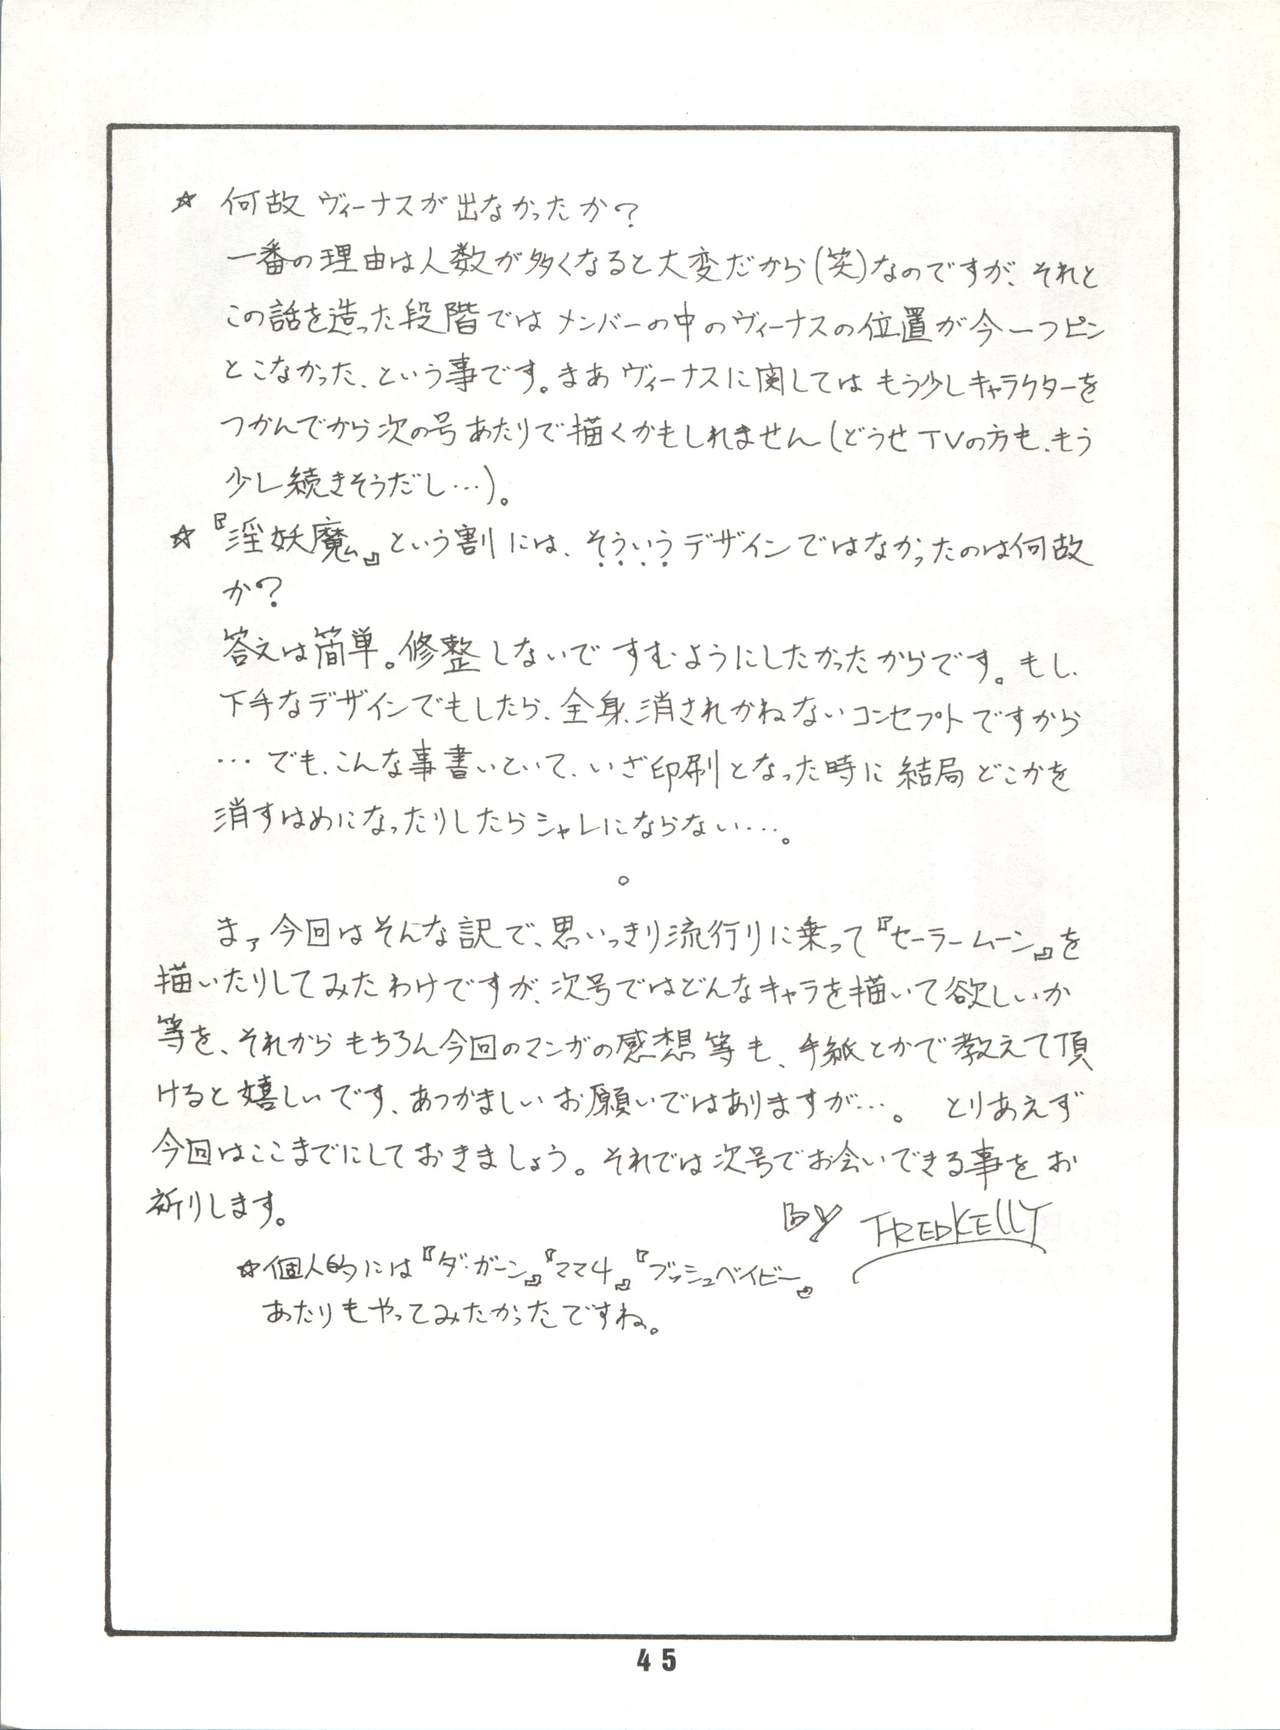 ☆ 何故ヴィーナスが出なかったか?
一番の理由は人数が多くなると大変だから(笑)なのですが、それと
この話を造った段階ではメンバーの中のヴィーナスの位置が今一つピン
とこなかった、という事です。まあヴィーナスに関してはもう少しキャラクターを
つかんでから次の号あたりで描くかもしれません(どうせTVの方も、もう
少し続きそうだし…)。
☆『淫妖魔』という割には、そういうデザインではなかったのは何故
か?
答えは簡単。修整しないですむようにしたかったからです。もし、
下手なデザインでもしたら、全身消されかねないコンセプトですから
…でも、こんな事書いといて、いざ印刷となった時に結局どこかを
消すはめになったりしたらシャレにならない…。
。
まァ今回はそんな訳で、思いっきり流行りに乗って『セーラームーン』を
描いたりしてみたわけですが、次号ではどんなキャラを描いて欲しいか
等を、それからもちろん今回のマンガの感想等も、手紙とかで教えて頂
けると嬉しいです、あつかましいお願いではありますが…。 とりあえず
今回はここまでにしておきましょう。それでは次号でお会いできる事をお
祈りします。
BY FREDKELLY
☆個人的には『ダ・ガーン』『ママ4』『ブッシュベイビー』
あたりもやってみたかったですね。
45